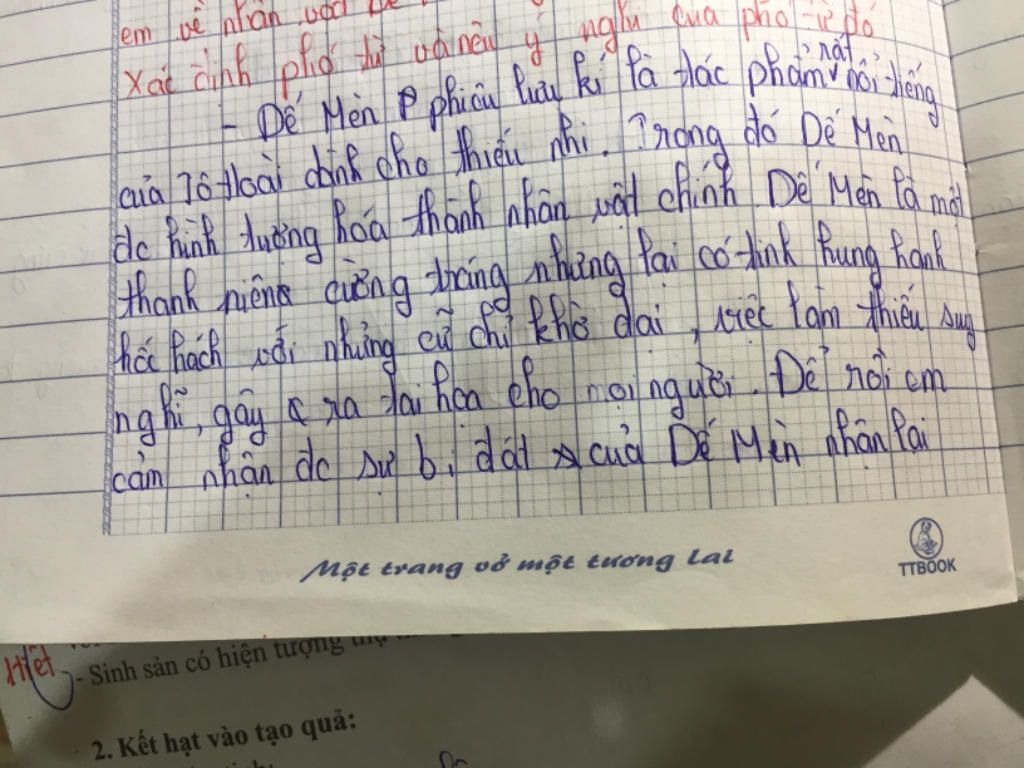 em về nhân vật
Xác định phó từ và nêu ý nghĩ của phó từ đó
- Dế Mèn phiêu lưu kí là tác phẩm rất nổi tiếng
của Tô Hoài dành cho thiếu nhi. Trong đó Dế Mèn
đc hình tượng hóa thành nhân vật chính. Dế Mèn là một
thanh niên cường tráng nhưng lại có tính hung hanh
hóc hách với những cử chỉ khờ dại, việc làm thiếu suy
nghĩ, gây ra tai họa cho mọi người. Để rồi em
cảm nhận đc sự bị đát của Dế Mèn nhận lại
Một trang vở một tương lai
TTBOOK
Hiệt
- Sinh sản có hiện tượng thụ
2. Kết hạt vào tạo quả: